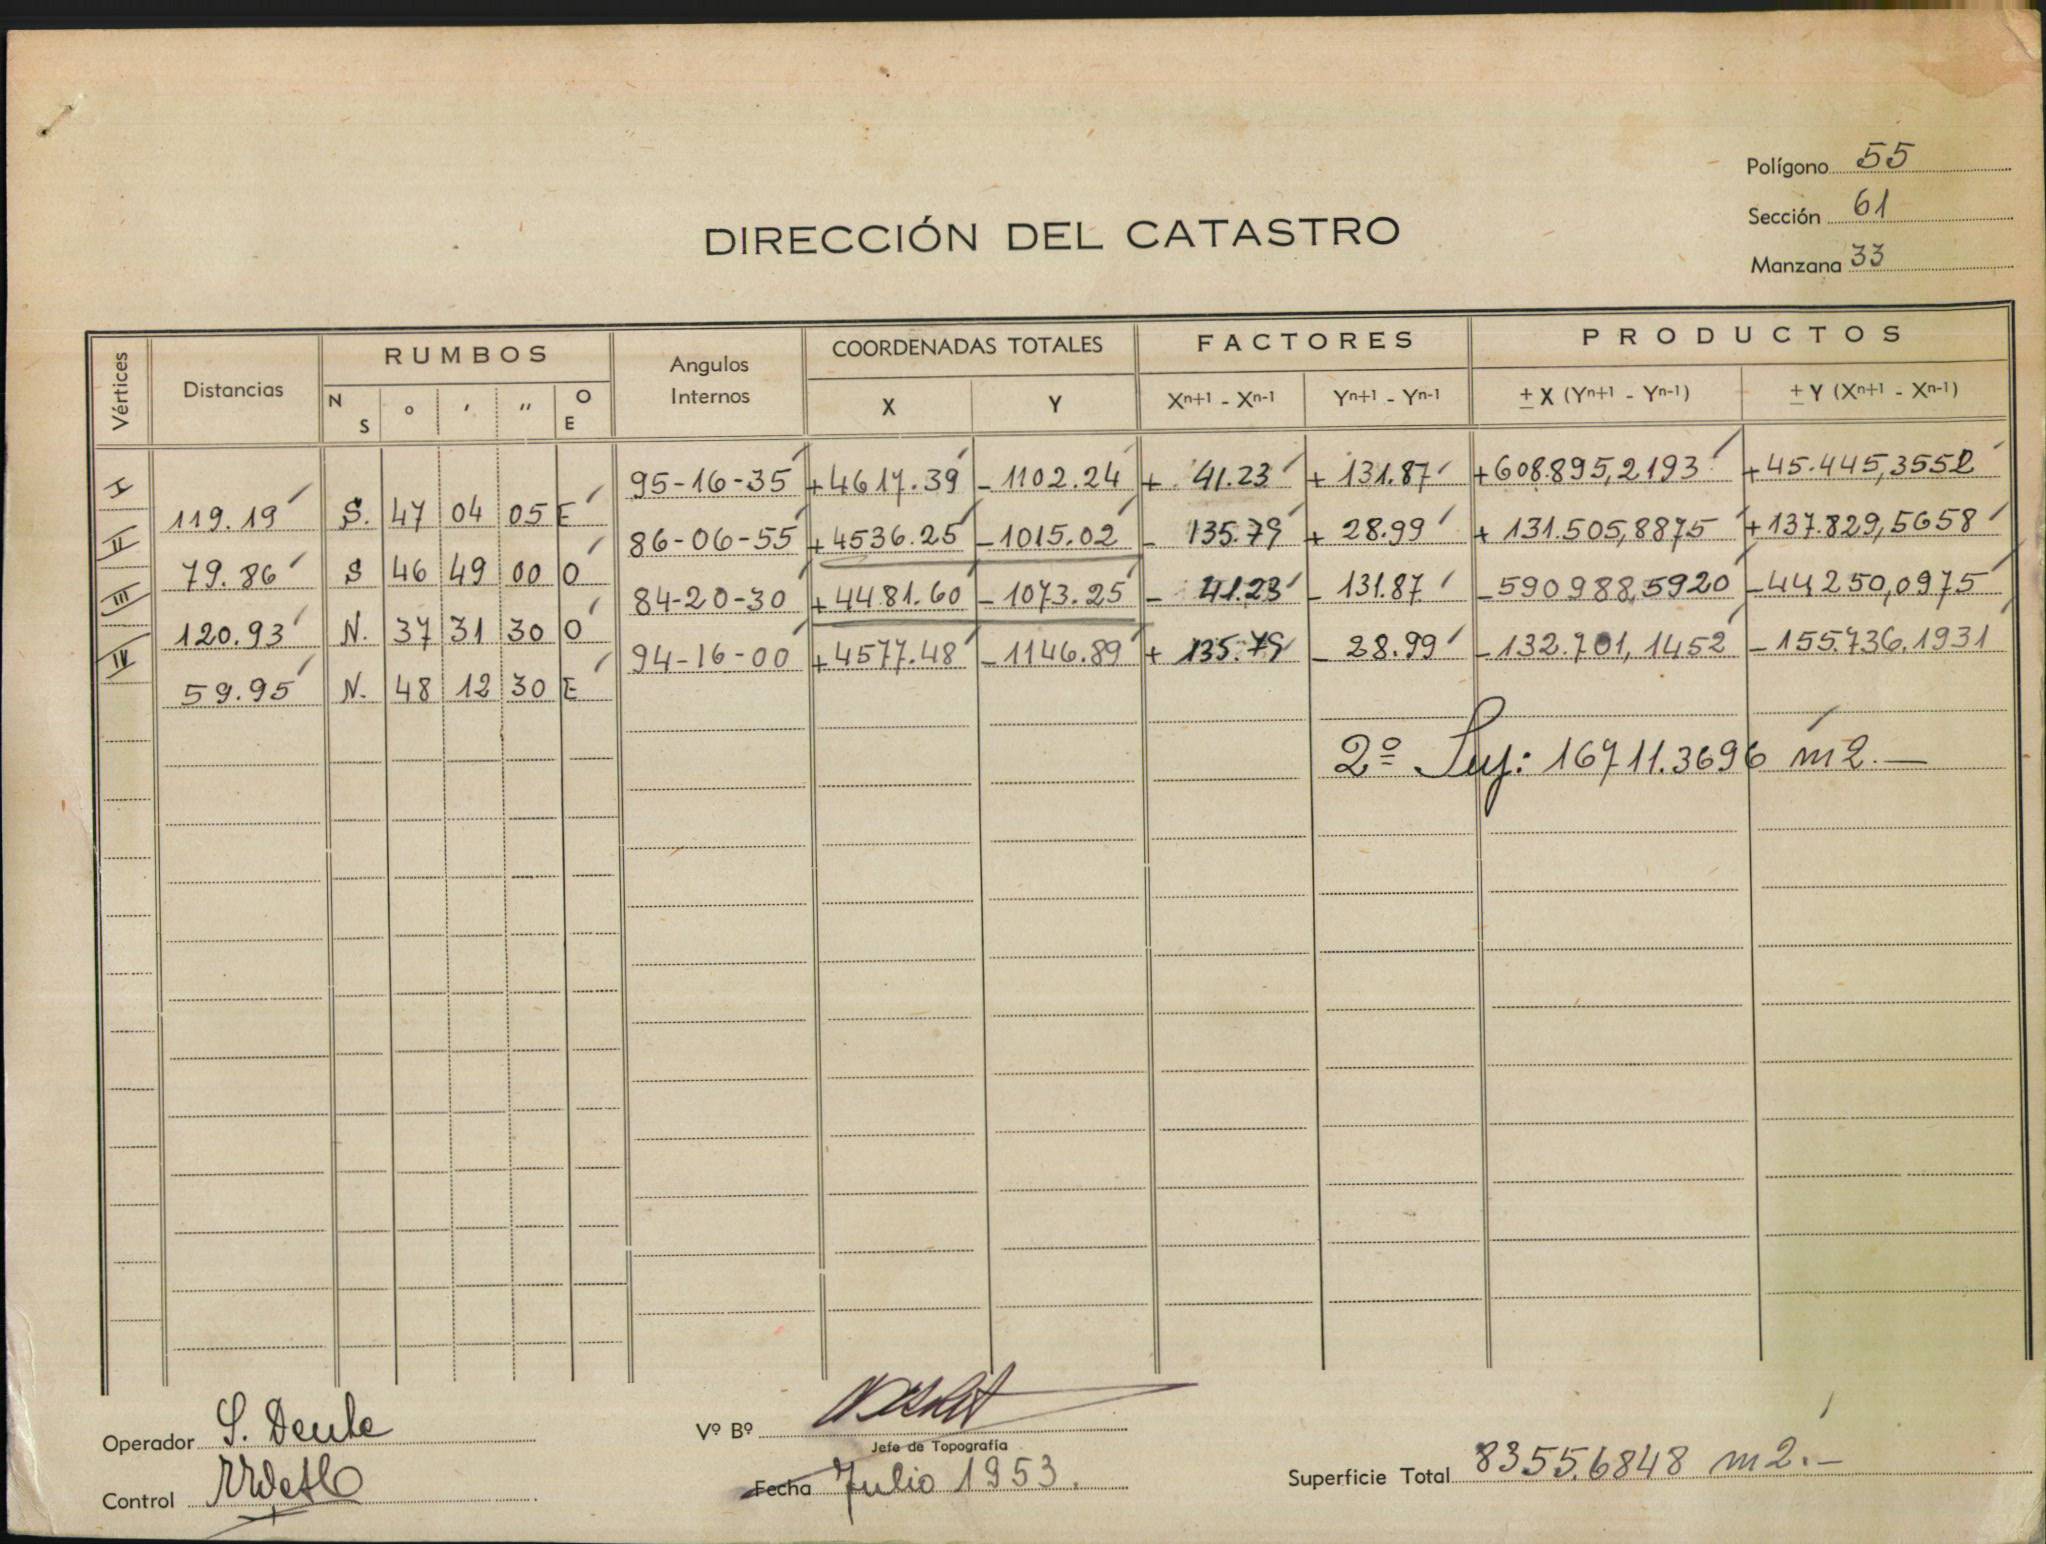 Polígono 55
Sección 61
Manzana 33
DIRECCIÓN DEL CATASTRO
Vértices Distancias RUMBOS Angulos Internos COORDENADAS TOTALES FACTORES PRODUCTOS
N S ° ' " O E X Y Xn+1 - Xn-1 Yn+1 - Yn-1 ± X (Yn+1 - Yn-1) ± Y (Xn+1 - Xn-1)
I 95-16-35 +4617.39 -1102.24 + 41.23 + 131.87 +608.895,2193 +45.445,3552
119.19 S. 47 04 05 E
II 86-06-55 +4536.25 -1015.02 - 135.79 + 28.99 + 131.505,8875 +137.829,5658
79.86 S 46 49 00 O
III 84-20-30 +4481.60 -1073.25 - 41.23 - 131.87 -590988,5920 -44250,0975
120.93 N. 37 31 30 O
IV 94-16-00 +4577.48 -1146.89 + 135.79 - 28.99 -132.701,1452 -155.736.1931
59.95 N. 48 12 30 E
2º Sup: 16711.3696 m2.—
Operador S. Deule
Vº Bº
Jefe de Topografía
Control
Fecha Julio 1953.
Superficie Total 8355.6848 m2.-